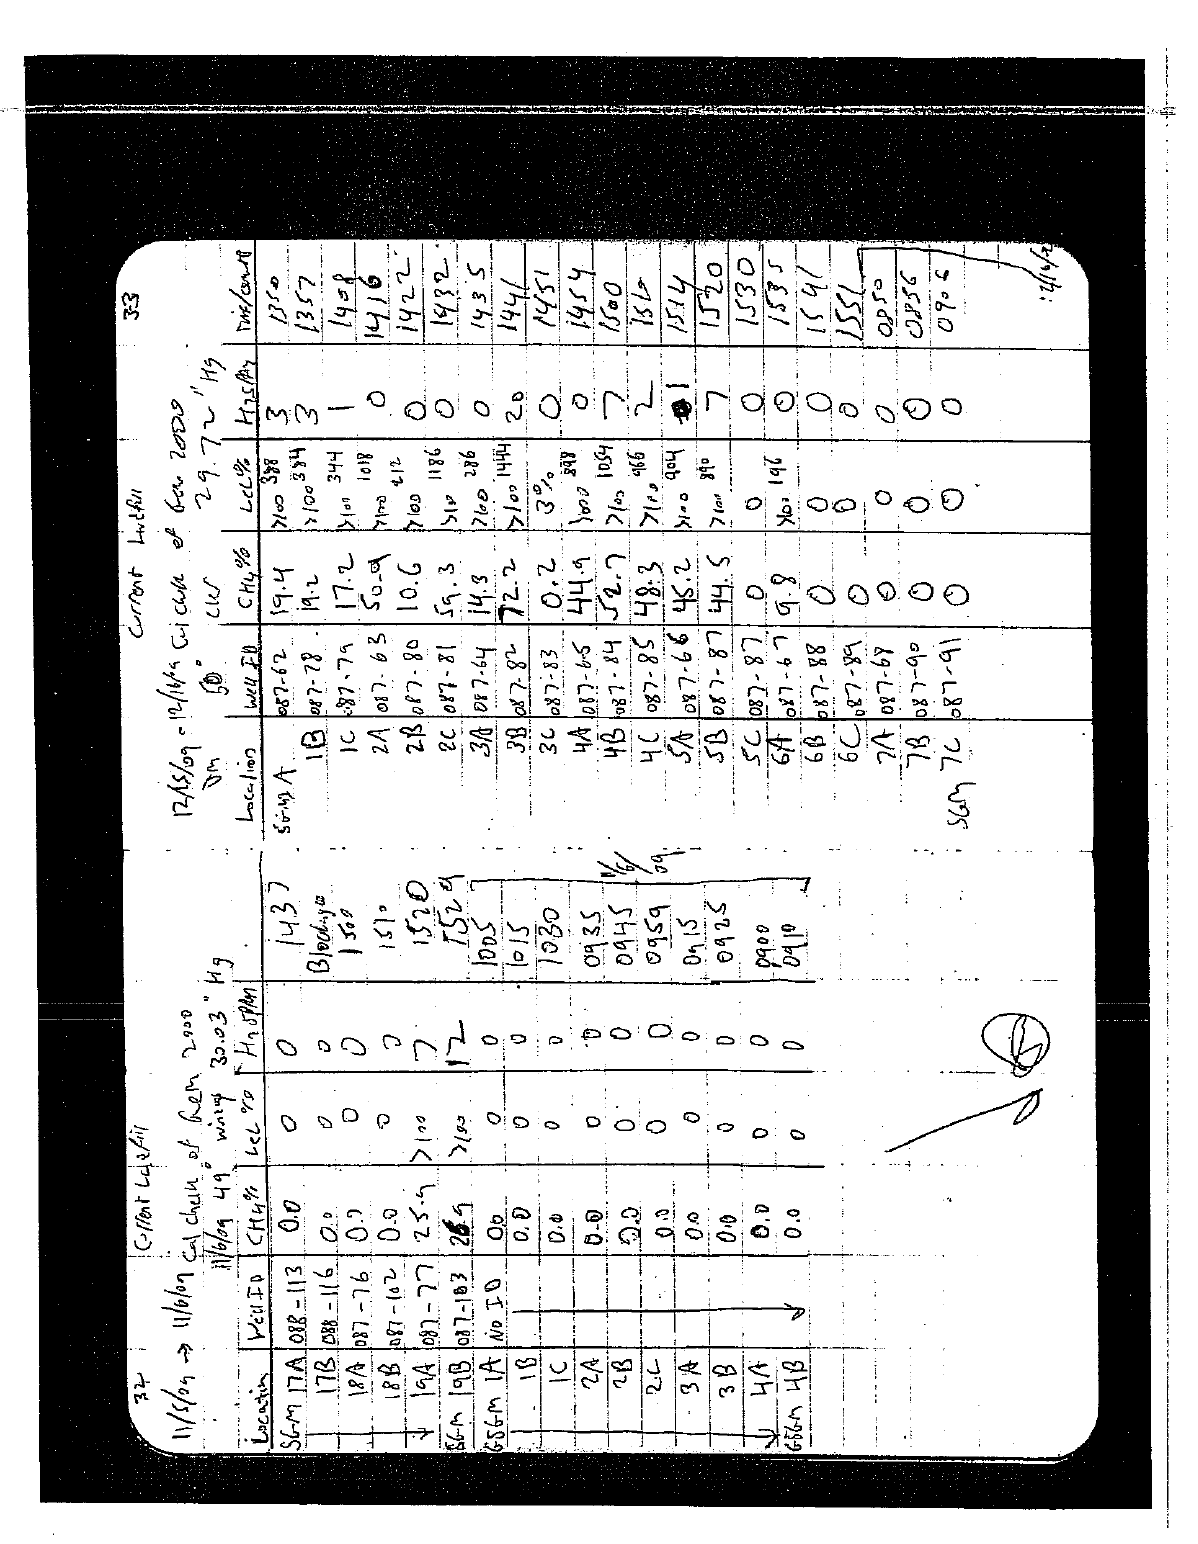 32
Current Landfill
11/5/09 → 11/6/09 Cal check of Gem 2000
11/6/09 49° winds 30.03 "Hg
Location Well ID CH4% LEL % H2S PPM
SGM 17A 088-113 0.0 0 0 1437
17B 088-116 0.0 0 0 Blockage
18A 087-76 0.0 0 0 1500
18B 087-102 0.0 0 0 1510
19A 087-77 25.9 >100 7 1520
SGM 19B 087-103 >100 12 1529
GSGM 1A NO ID 0.0 0 0 1005
1B 0.0 0 0 1015
1C 0.0 0 0 1030
2A 0.0 0 0 0935
2B 0.0 0 0 0945
2C 0.0 0 0 0959
3A 0.0 0 0 0915
3B 0.0 0 0 0925
4A 0.0 0 0 0900
GSGM 4B 0.0 0 0 0910
11/6/09
33
Current Landfill
12/15/09 - 12/16/09 Cal check of Gem 2000
50° 29.72 "Hg
Location Well ID CH4% LEL% H2S PPM
1A 087-62 19.4 >100 388 3 1350
1B 087-78 19.2 >100 384 3 1357
1C 087-79 17.2 >100 344 1 1408
2A 087-63 50.9 >100 1018 0 1416
2B 087-80 10.6 >100 212 0 1422
2C 087-81 59.3 >100 1186 0 1432
3A 087-64 14.3 >100 286 0 1435
3B 087-82 72.2 >100 1444 20 1441
3C 087-83 0.2 3% 0 1451
4A 087-65 44.9 >100 898 0 1454
4B 087-84 52.7 >100 1054 7 1500
4C 087-85 48.3 >100 966 2 1510
5A 087-66 45.2 >100 904 1 1514
5B 087-87 44.5 >100 890 7 1520
5C 087-87 0 0 0 1530
6A 087-67 9.8 >100 196 0 1535
6B 087-88 0 0 0 1541
6C 087-89 0 0 0 1551
7A 087-68 0 0 0 0850
7B 087-90 0 0 0 0856
SGM 7C 087-91 0 0 0 0906